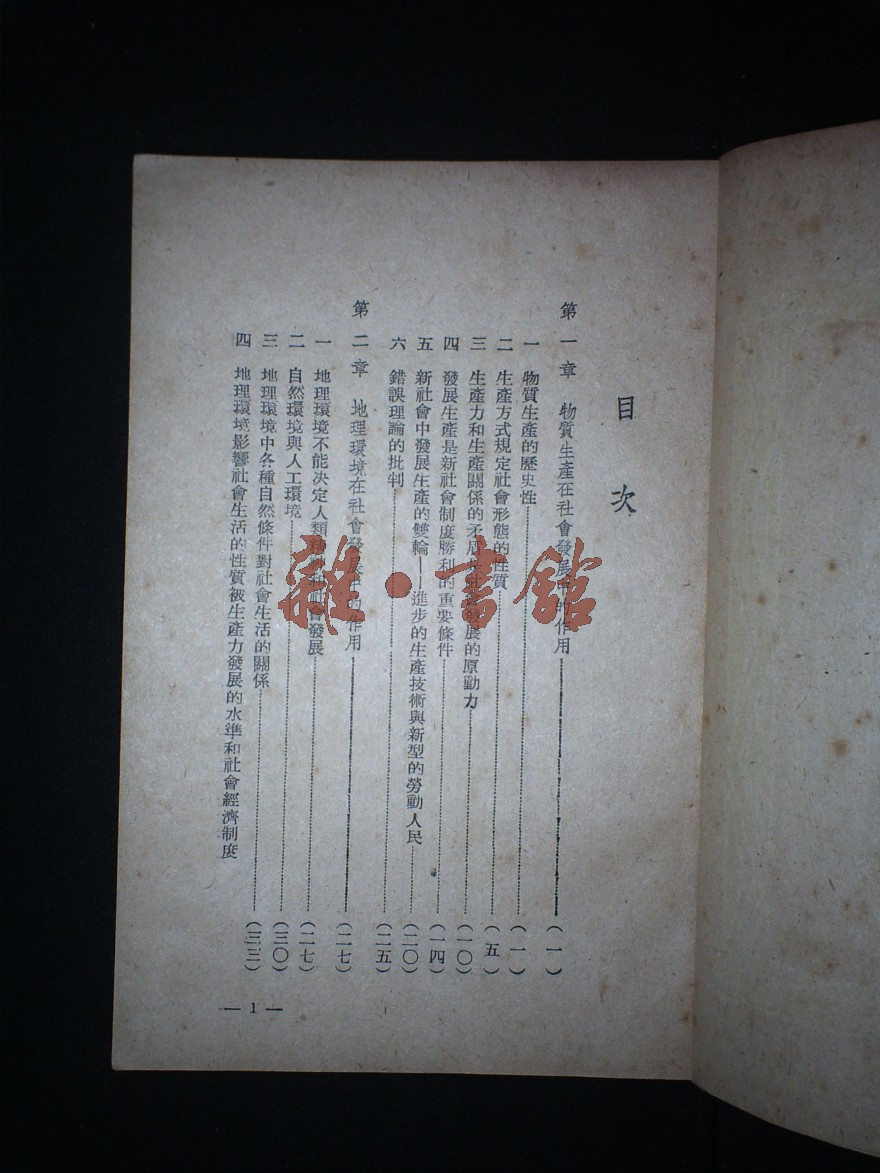 目次
第一章 物質生產在社會發展中的作用 (一)
一 物質生產的歷史性 (一)
二 生產方式規定社會形態的性質 (五)
三 生產力和生產關係的矛盾 發展的原動力 (一〇)
四 發展生產是新社會制度勝利的重要條件 (一四)
五 新社會中發展生產的雙輪——進步的生產技術與新型的勞動人民 (二〇)
六 錯誤理論的批判 (二五)
第二章 地理環境在社會發展中的作用 (二七)
一 地理環境不能決定人類 社會發展 (二七)
二 自然環境與人工環境 (三〇)
三 地理環境中各種自然條件對社會生活的關係 (三三)
四 地理環境影響社會生活的性質被生產力發展的水準和社會經濟制度
— 1 —
雜·書館